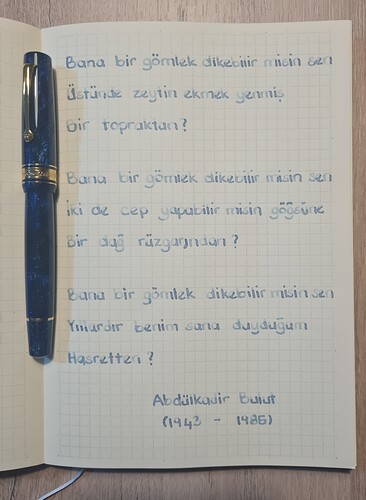 Bana bir gömlek dikebilir misin sen
Üstünde zeytin ekmek yenmiş
Bir topraktan?
Bana bir gömlek dikebilir misin sen
İki de cep yapabilir misin göğsüne
Bir dağ rüzgarından?
Bana bir gömlek dikebilir misin sen
Yıllardır benim sana duyduğum
Hasretten?
Abdülkadir Bulut
(1943 - 1985)